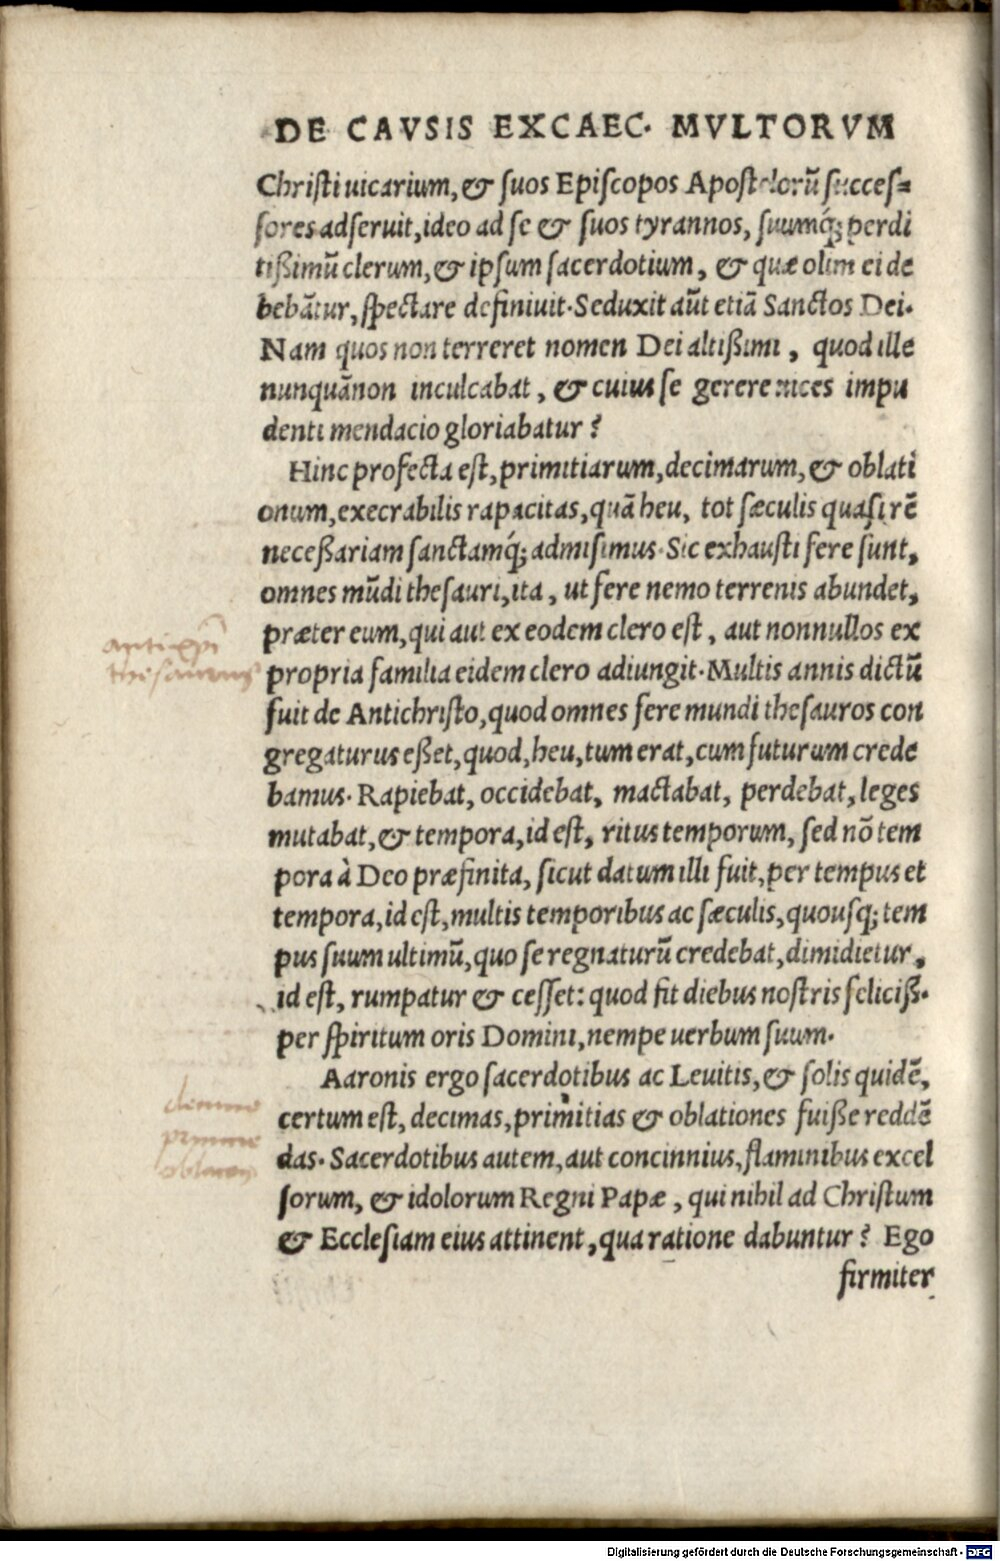 DE CAVSIS EXCAEC. MVLTORVM
Christi uicarium, & suos Episcopos Apostolorū succes=
sores adseruit, ideo ad se & suos tyrannos, suumq́; perdi
tißimū clerum, & ipsum sacerdotium, & quæ olim ei de
bebātur, spectare definiuit. Seduxit aūt etiā Sanctos Dei.
Nam quos non terreret nomen Dei altißimi, quod ille
nunquā non inculcabat, & cuius se gerere uices impu
denti mendacio gloriabatur?
Hinc profecta est, primitiarum, decimarum, & oblati
onum, execrabilis rapacitas, quā heu, tot sæculis quasi rē
neceßariam sanctamq́; admisimus. Sic exhausti fere sunt,
omnes mūdi thesauri, ita, ut fere nemo terrenis abundet,
præter eum, qui aut ex eodem clero est, aut nonnullos ex
propria familia eidem clero adiungit. Multis annis dictū
fuit de Antichristo, quod omnes fere mundi thesauros con
gregaturus eßet, quod, heu, tum erat, cum futurum crede
bamus. Rapiebat, occidebat, mactabat, perdebat, leges
mutabat, & tempora, id est, ritus temporum, sed nō tem
pora à Deo præfinita, sicut datum illi fuit, per tempus et
tempora, id est, multis temporibus ac sæculis, quousq; tem
pus suum ultimū, quo se regnaturū credebat, dimidietur,
id est, rumpatur & cesset: quod fit diebus nostris feliciß.
per spiritum oris Domini, nempe uerbum suum.
Aaronis ergo sacerdotibus ac Leuitis, & solis quidē,
certum est, decimas, primitias & oblationes fuiße reddē
das. Sacerdotibus autem, aut concinnius, flaminibus excel
sorum, & idolorum Regni Papæ, qui nihil ad Christum
& Ecclesiam eius attinent, qua ratione dabuntur? Ego
firmiter
thesaurus
Digitalisierung gefördert durch die Deutsche Forschungsgemeinschaft - DFG